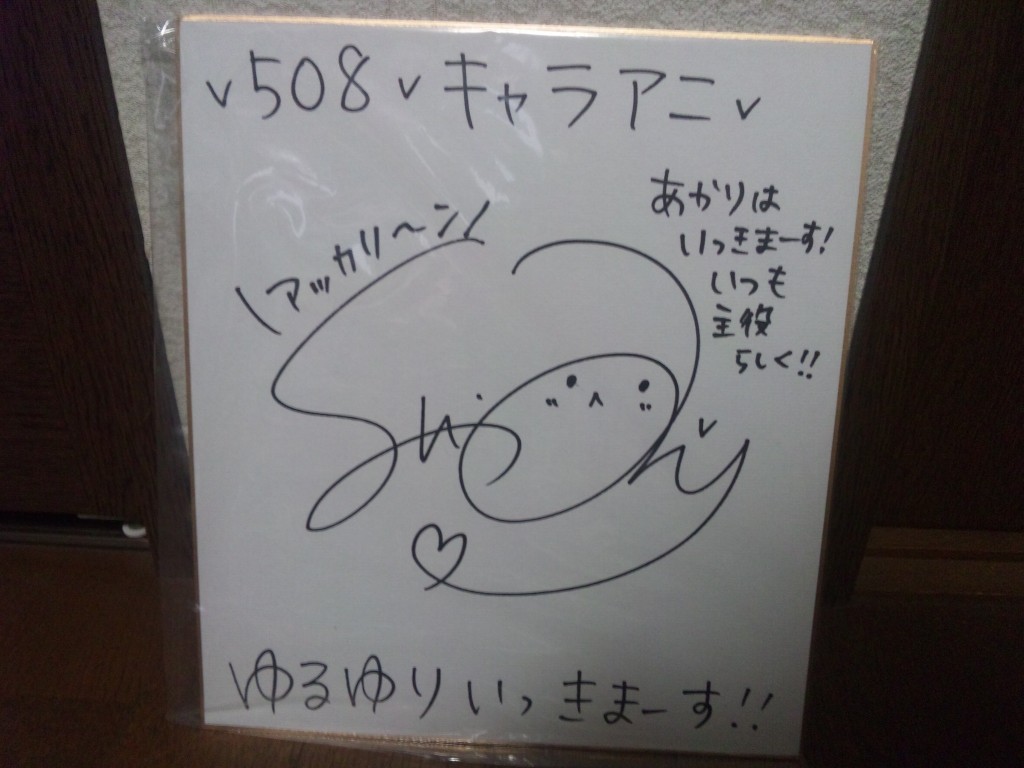 508 キャラアニ
\アッカリ～ン/
あかりは
いっきまーす!
いつも
主役
らしく!!
ゆるゆり いっきまーす!!